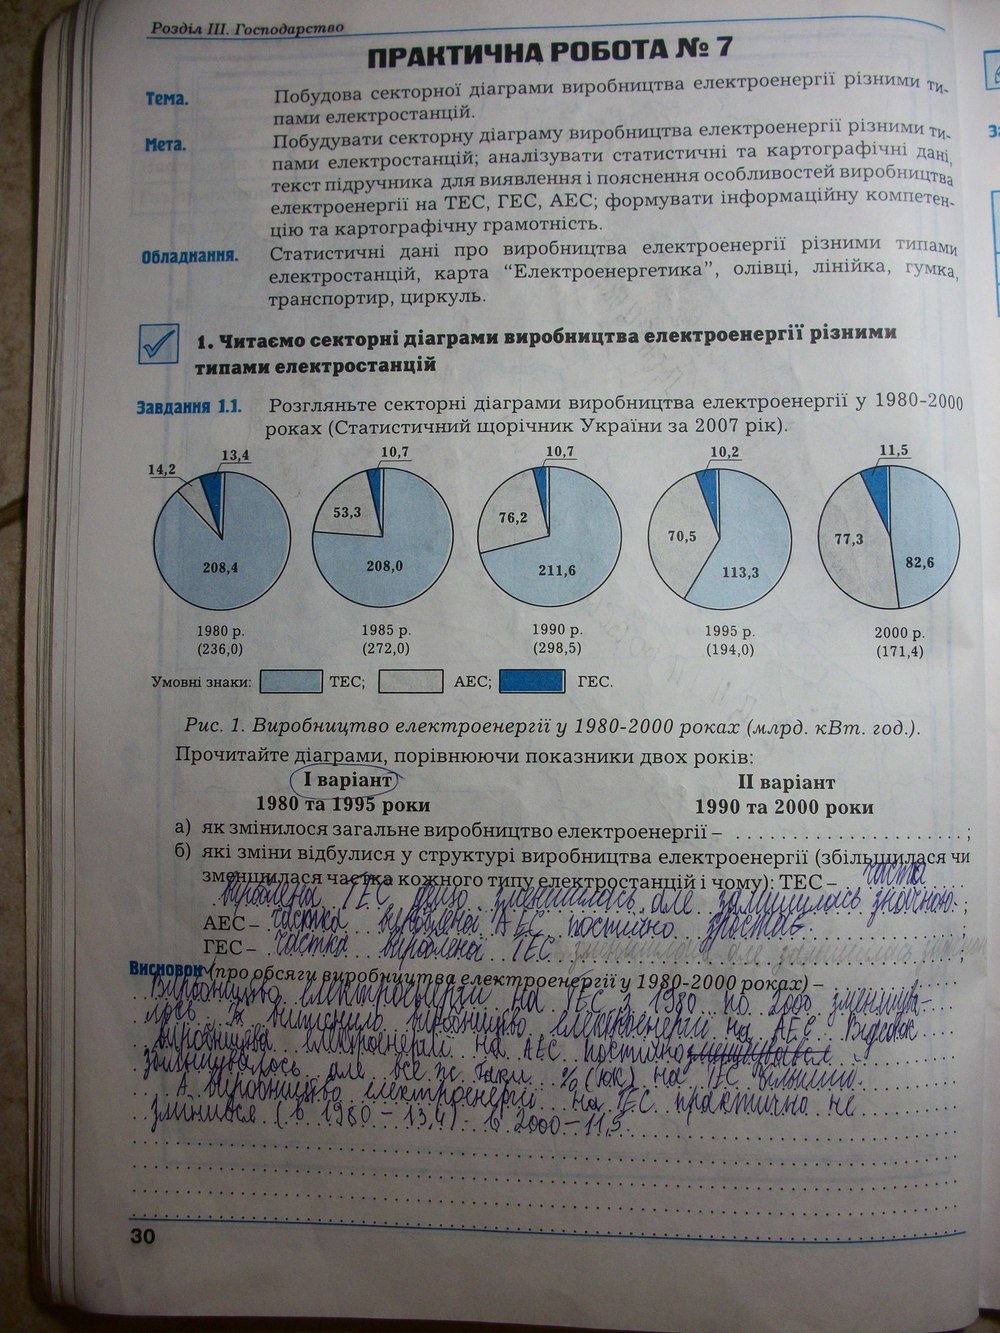 Розділ III. Господарство
ПРАКТИЧНА РОБОТА № 7
Тема. Побудова секторної діаграми виробництва електроенергії різними ти-
пами електростанцій.
Мета. Побудувати секторну діаграму виробництва електроенергії різними ти-
пами електростанцій; аналізувати статистичні та картографічні дані,
текст підручника для виявлення і пояснення особливостей виробництва
електроенергії на ТЕС, ГЕС, АЕС; формувати інформаційну компетен-
цію та картографічну грамотність.
Обладнання. Статистичні дані про виробництва електроенергії різними типами
електростанцій, карта “Електроенергетика”, олівці, лінійка, гумка,
транспортир, циркуль.
1. Читаємо секторні діаграми виробництва електроенергії різними
типами електростанцій
Завдання 1.1. Розгляньте секторні діаграми виробництва електроенергії у 1980-2000
роках (Статистичний щорічник України за 2007 рік).
14,2 13,4 10,7 10,7 10,2 11,5
53,3 76,2 70,5 77,3
208,4 208,0 211,6 113,3 82,6
1980 р. 1985 р. 1990 р. 1995 р. 2000 р.
(236,0) (272,0) (298,5) (194,0) (171,4)
Умовні знаки: ТЕС; АЕС; ГЕС.
Рис. 1. Виробництво електроенергії у 1980-2000 роках (млрд. кВт. год.).
Прочитайте діаграми, порівнюючи показники двох років:
I варіант II варіант
1980 та 1995 роки 1990 та 2000 роки
а) як змінилося загальне виробництво електроенергії – ;
б) які зміни відбулися у структурі виробництва електроенергії (збільшилася чи
зменшилася частка кожного типу електростанцій і чому): ТЕС – частка
вироблена ТЕС зменшилась, але залишилась значною. ;
АЕС – частка вироблена АЕС постійно зростає. ;
ГЕС – частка вироблена ГЕС
Висновок (про обсяги виробництва електроенергії у 1980-2000 роках) –
Виробництво електроенергії на ТЕС з 1980 по 2000 зменшува-
лось. виробництво електроенергії на АЕС. Відсоток
виробництва електроенергії на АЕС постійно
збільшувалось, але все ж таки % на ТЕС більший.
А виробництво електроенергії на ГЕС практично не
змінилося (в 1980 – 13,4) в 2000 – 11,5.
30